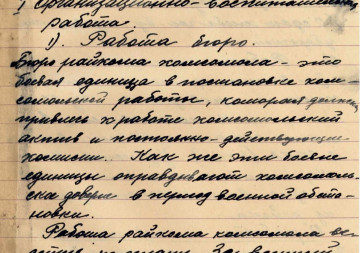 I Организационно-воспитательная
работа.
1). Работа бюро.
Бюро райкома комсомола - это
боевая единица в постановке ком-
сомольской работы, которая должна
привлечь к работе комсомольский
актив и постоянно-действующие
комиссии. Как же эти боевые
единицы оправдывают комсомоль-
ское доверие в период военной обста-
новки.
Работа райкома комсомола